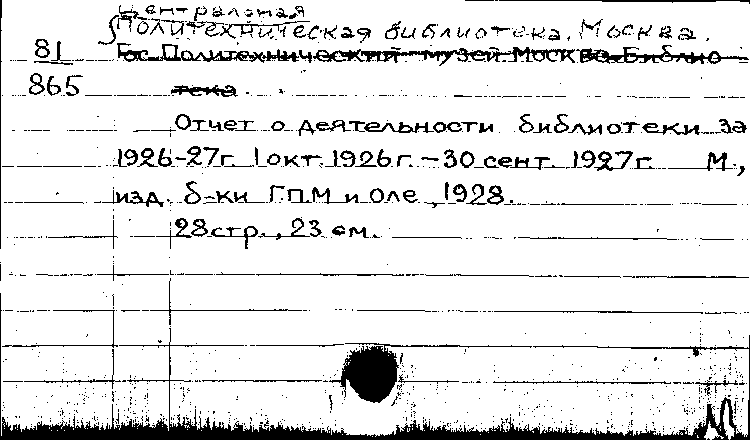 Центральная
Политехническая библиотека. Москва.
81 Гос. Политехнический музей. Москва. Библио
865 тека
Отчет о деятельности библиотеки за
1926-27г. 1 окт. 1926г. - 30 сент. 1927г. М.,
изд. б-ки Г.П.М и Оле, 1928.
28стр., 23 см.